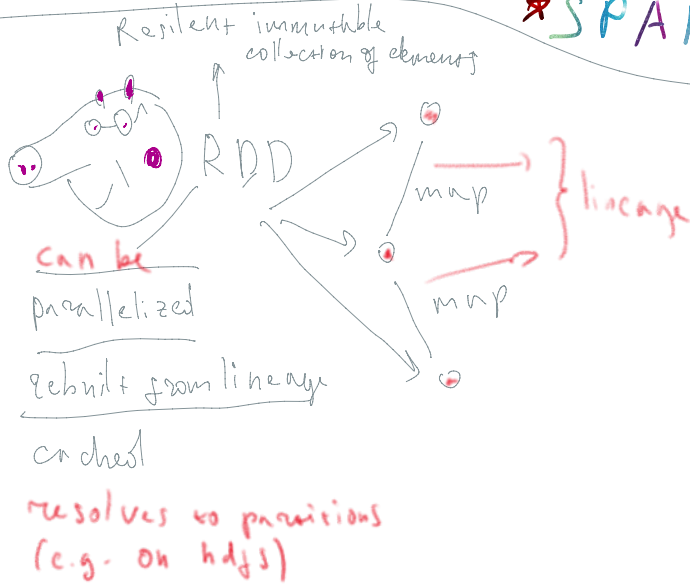 *SPAR
Resilent immutable
collection of elements
RDD
map
lineage
map
can be
parallelized
rebuilt from lineage
cached
resolves to partitions
(e.g. on hdfs)